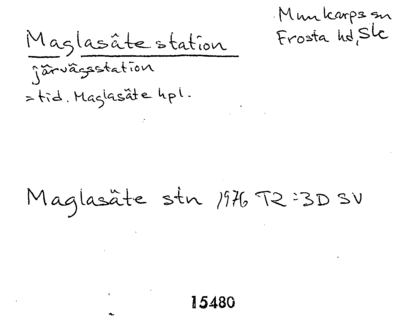 Maglasäte station
järvägsstation
= tid. Maglasäte hpl.
Munkarps sn
Frosta hd, Sk
Maglasäte stn 1976 T2:3D SV
15480